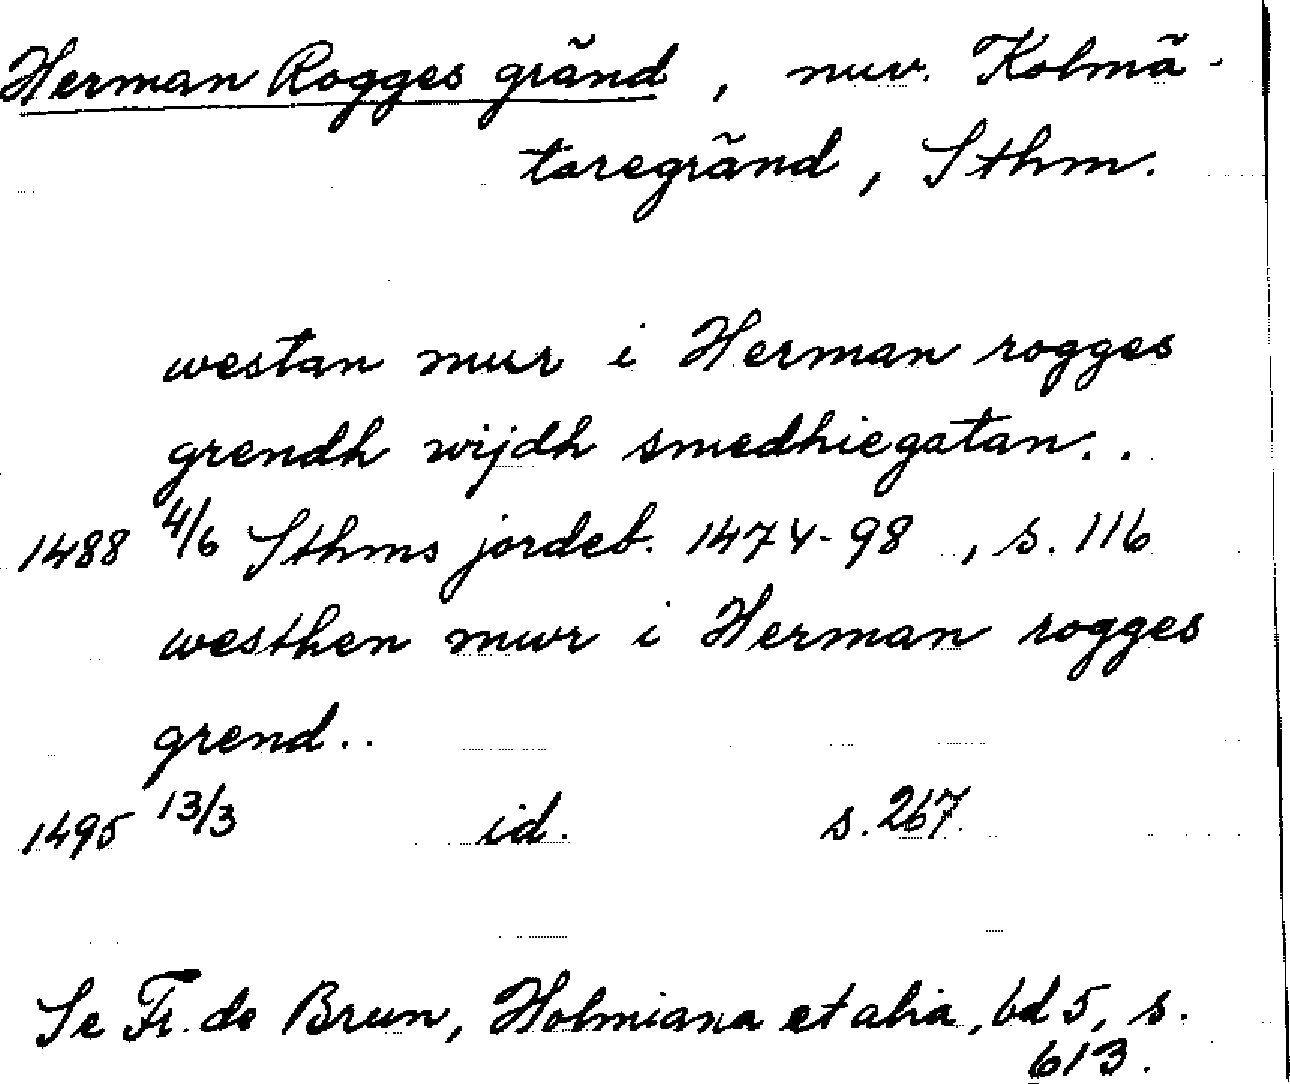 Herman Rogges gränd, nuv. Kolmä-
taregränd, Sthm.
westan mur i Herman rogges
grendh wijdh smedhiegatan..
1488 4/6 Sthms jordeb. 1474-98, s. 116
westhen mwr i Herman rogges
grend..
1495 13/3 id. s. 267
Se Fr. de Brun, Holmiana et alia, bd 5, s.
613.